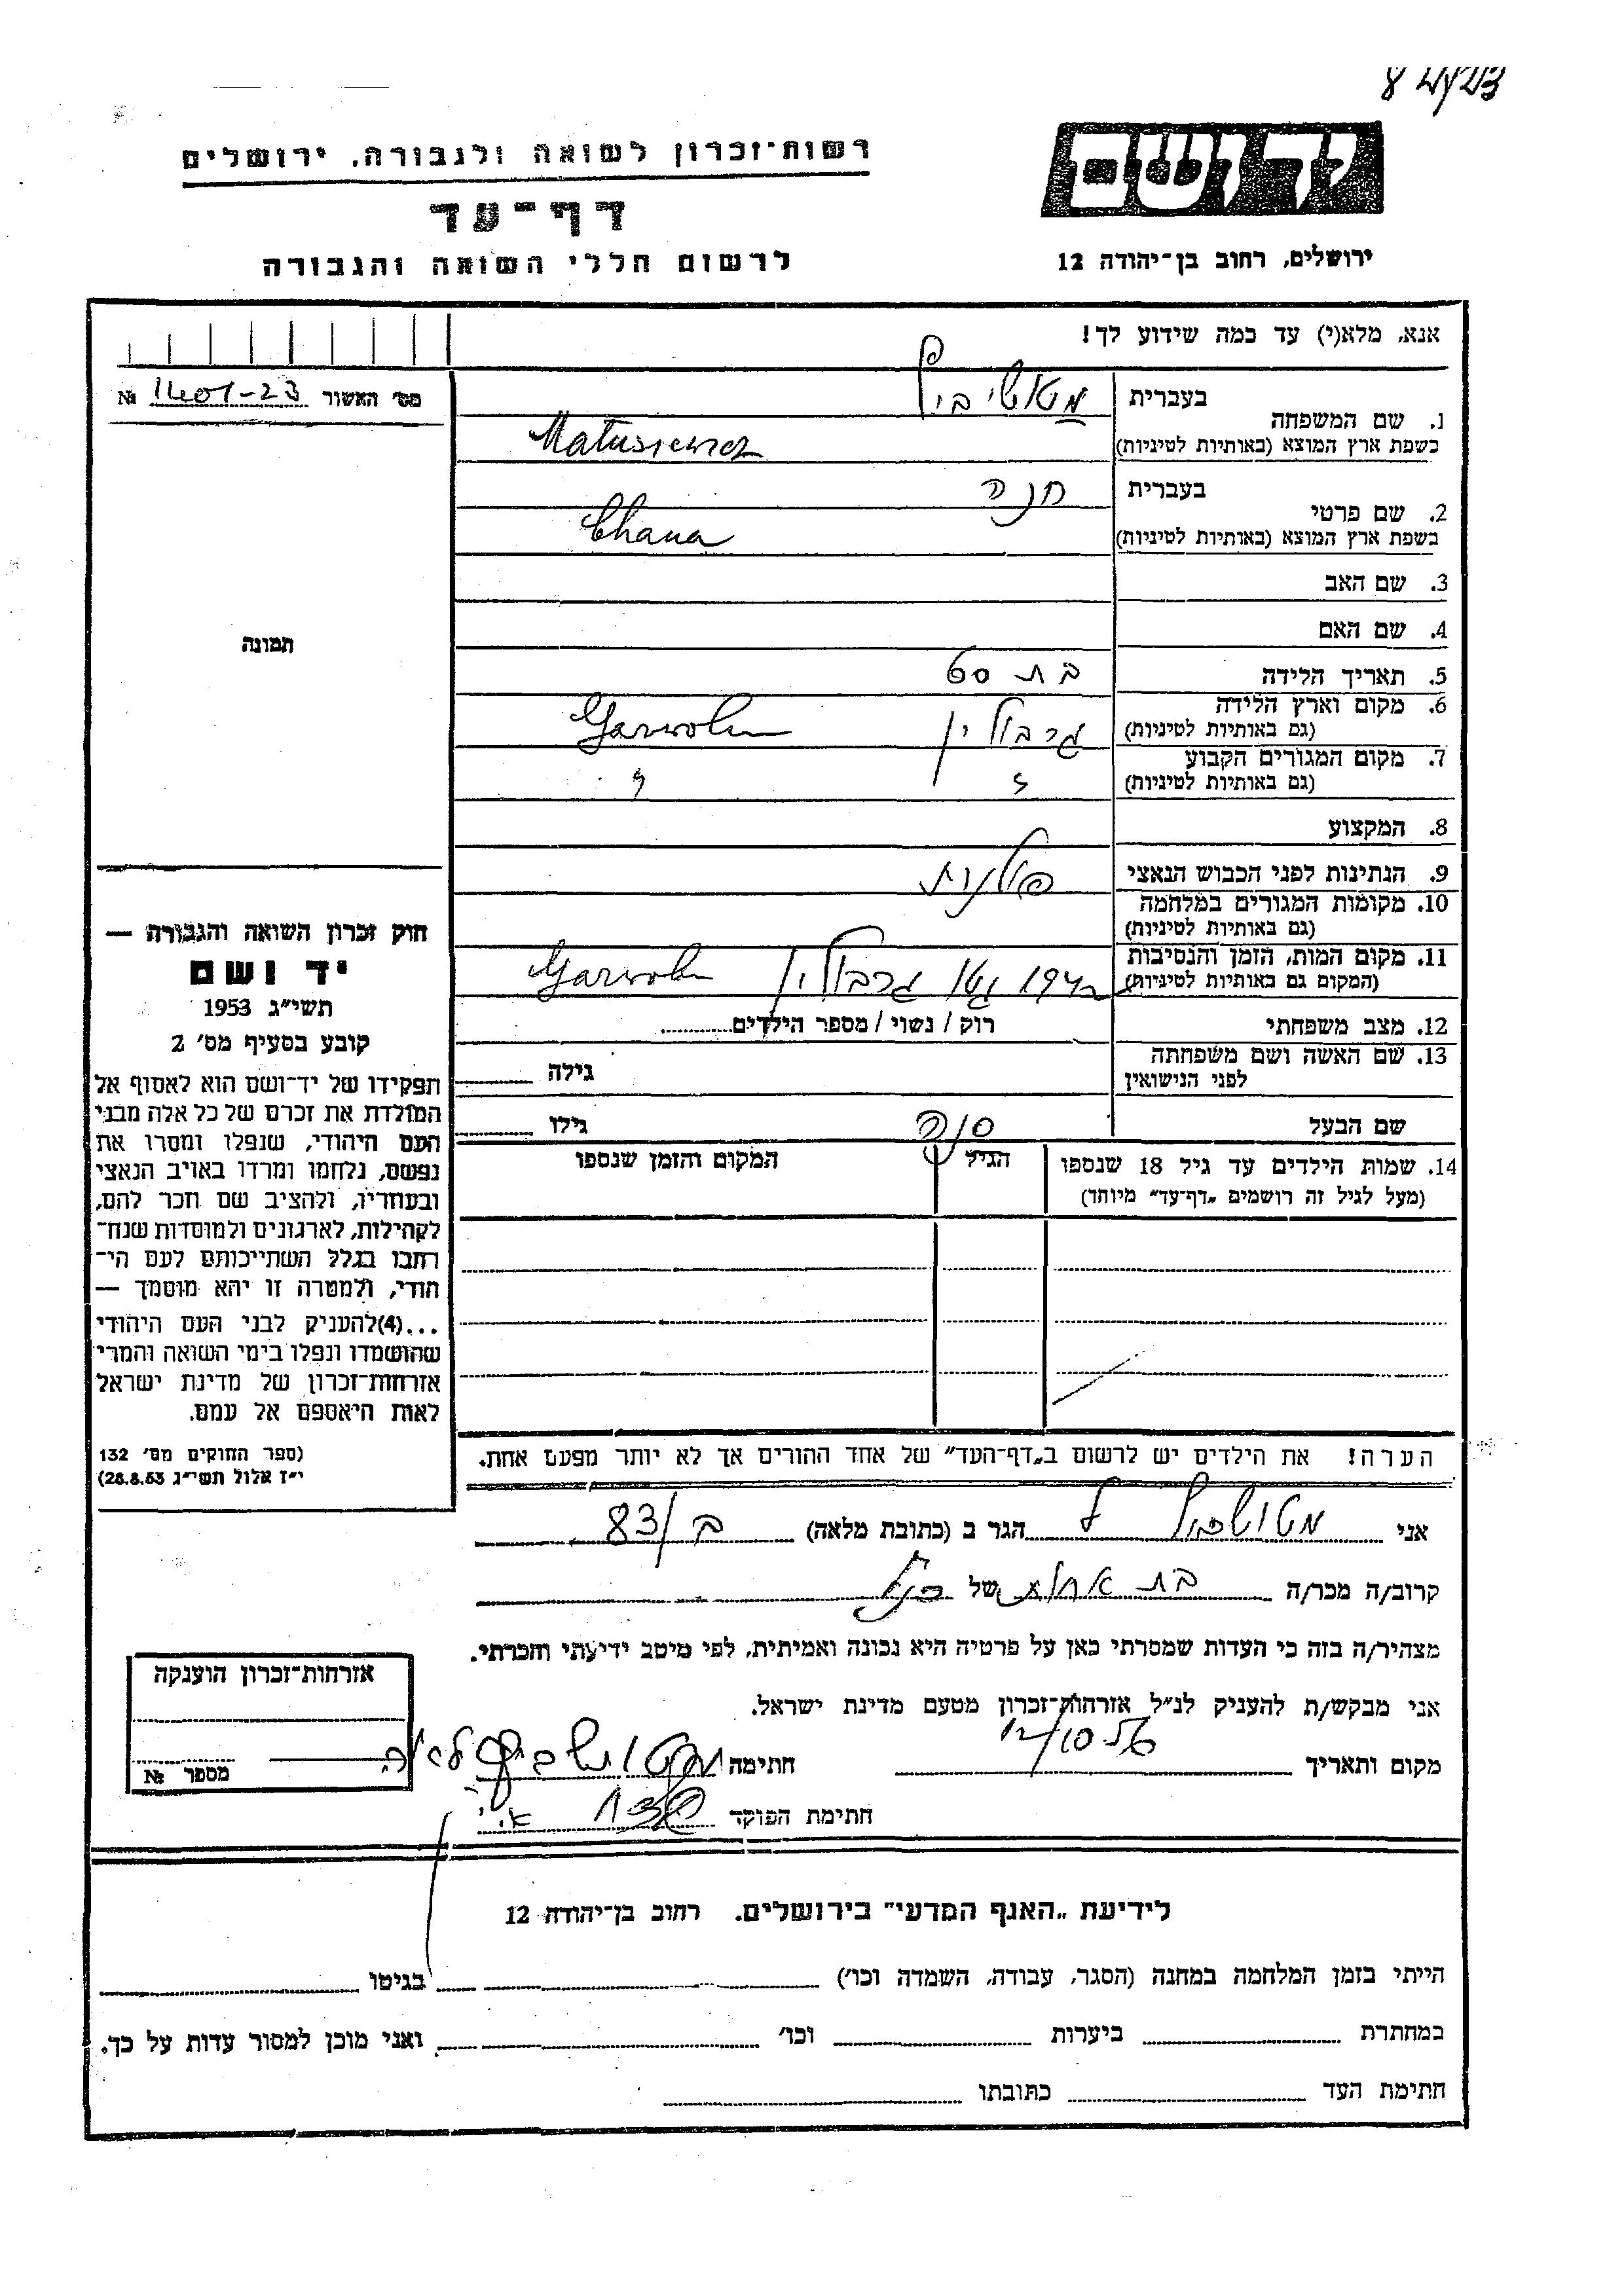 יד ושם
רשות־זכרון לשואה ולגבורה, ירושלים
דף־עד
לרשום חללי השואה והגבורה
ירושלים, רחוב בן־יהודה 12
אנא, מלא(י) עד כמה שידוע לך!
מס' האשור 1401-23 №
תמונה
בעברית
1. שם המשפחה
בשפת ארץ המוצא (באותיות לטיניות) Matusiewicz
בעברית חנה
2. שם פרטי
בשפת ארץ המוצא (באותיות לטיניות) Chana
3. שם האב
4. שם האם
5. תאריך הלידה בת 60
6. מקום וארץ הלידה
(גם באותיות לטיניות) גרבולין Garwolin
7. מקום המגורים הקבוע
(גם באותיות לטיניות)
8. המקצוע
9. הנתינות לפני הכבוש הנאצי פולנית
10. מקומות המגורים במלחמה
(גם באותיות לטיניות)
11. מקום המות, הזמן והנסיבות
(המקום גם באותיות לטיניות) גטו גרבולין Garwolin
12. מצב משפחתי רוק / נשוי / מספר הילדים
13. שם האשה ושם משפחתה
לפני הנישואין גילה
שם הבעל גילו
14. שמות הילדים עד גיל 18 שנספו הגיל המקום והזמן שנספו
(מעל לגיל זה רושמים „דף־עד" מיוחד)
חוק זכרון השואה והגבורה —
יד ושם
תשי"ג 1953
קובע בסעיף מס' 2
תפקידו של יד־ושם הוא לאסוף אל
המולדת את זכרם של כל אלה מבני
העם היהודי, שנפלו ומסרו את
נפשם, נלחמו ומרדו באויב הנאצי
ובעוזריו, ולהציב שם וזכר להם,
לקהילות, לארגונים ולמוסדות שנח־
רבו בגלל השתייכותם לעם הי־
הודי, ולמטרה זו יהא מוסמך —
...(4)להעניק לבני העם היהודי
שהושמדו ונפלו בימי השואה והמרי
אזרחות־זכרון של מדינת ישראל
לאות היאספם אל עמם.
(ספר החוקים מס' 132
י"ז אלול תשי"ג 28.8.53)
הערה! את הילדים יש לרשום ב„דף־העד" של אחד ההורים אך לא יותר מפעם אחת.
אני הגר ב (כתובת מלאה) 83/ב
קרוב/ה מכר/ה בת של
מצהיר/ה בזה כי העדות שמסרתי כאן על פרטיה היא נכונה ואמיתית, לפי מיטב ידיעתי והכרתי.
אני מבקש/ת להעניק לנ"ל אזרחות־זכרון מטעם מדינת ישראל.
מקום ותאריך חתימה
חתימת הפוקד
אזרחות־זכרון הוענקה
מספר №
לידיעת „האגף המדעי" בירושלים. רחוב בן־יהודה 12
הייתי בזמן המלחמה במחנה (הסגר, עבודה, השמדה וכו') בגיטו
במחתרת ביערות וכו' ואני מוכן למסור עדות על כך.
חתימת העד כתובתו